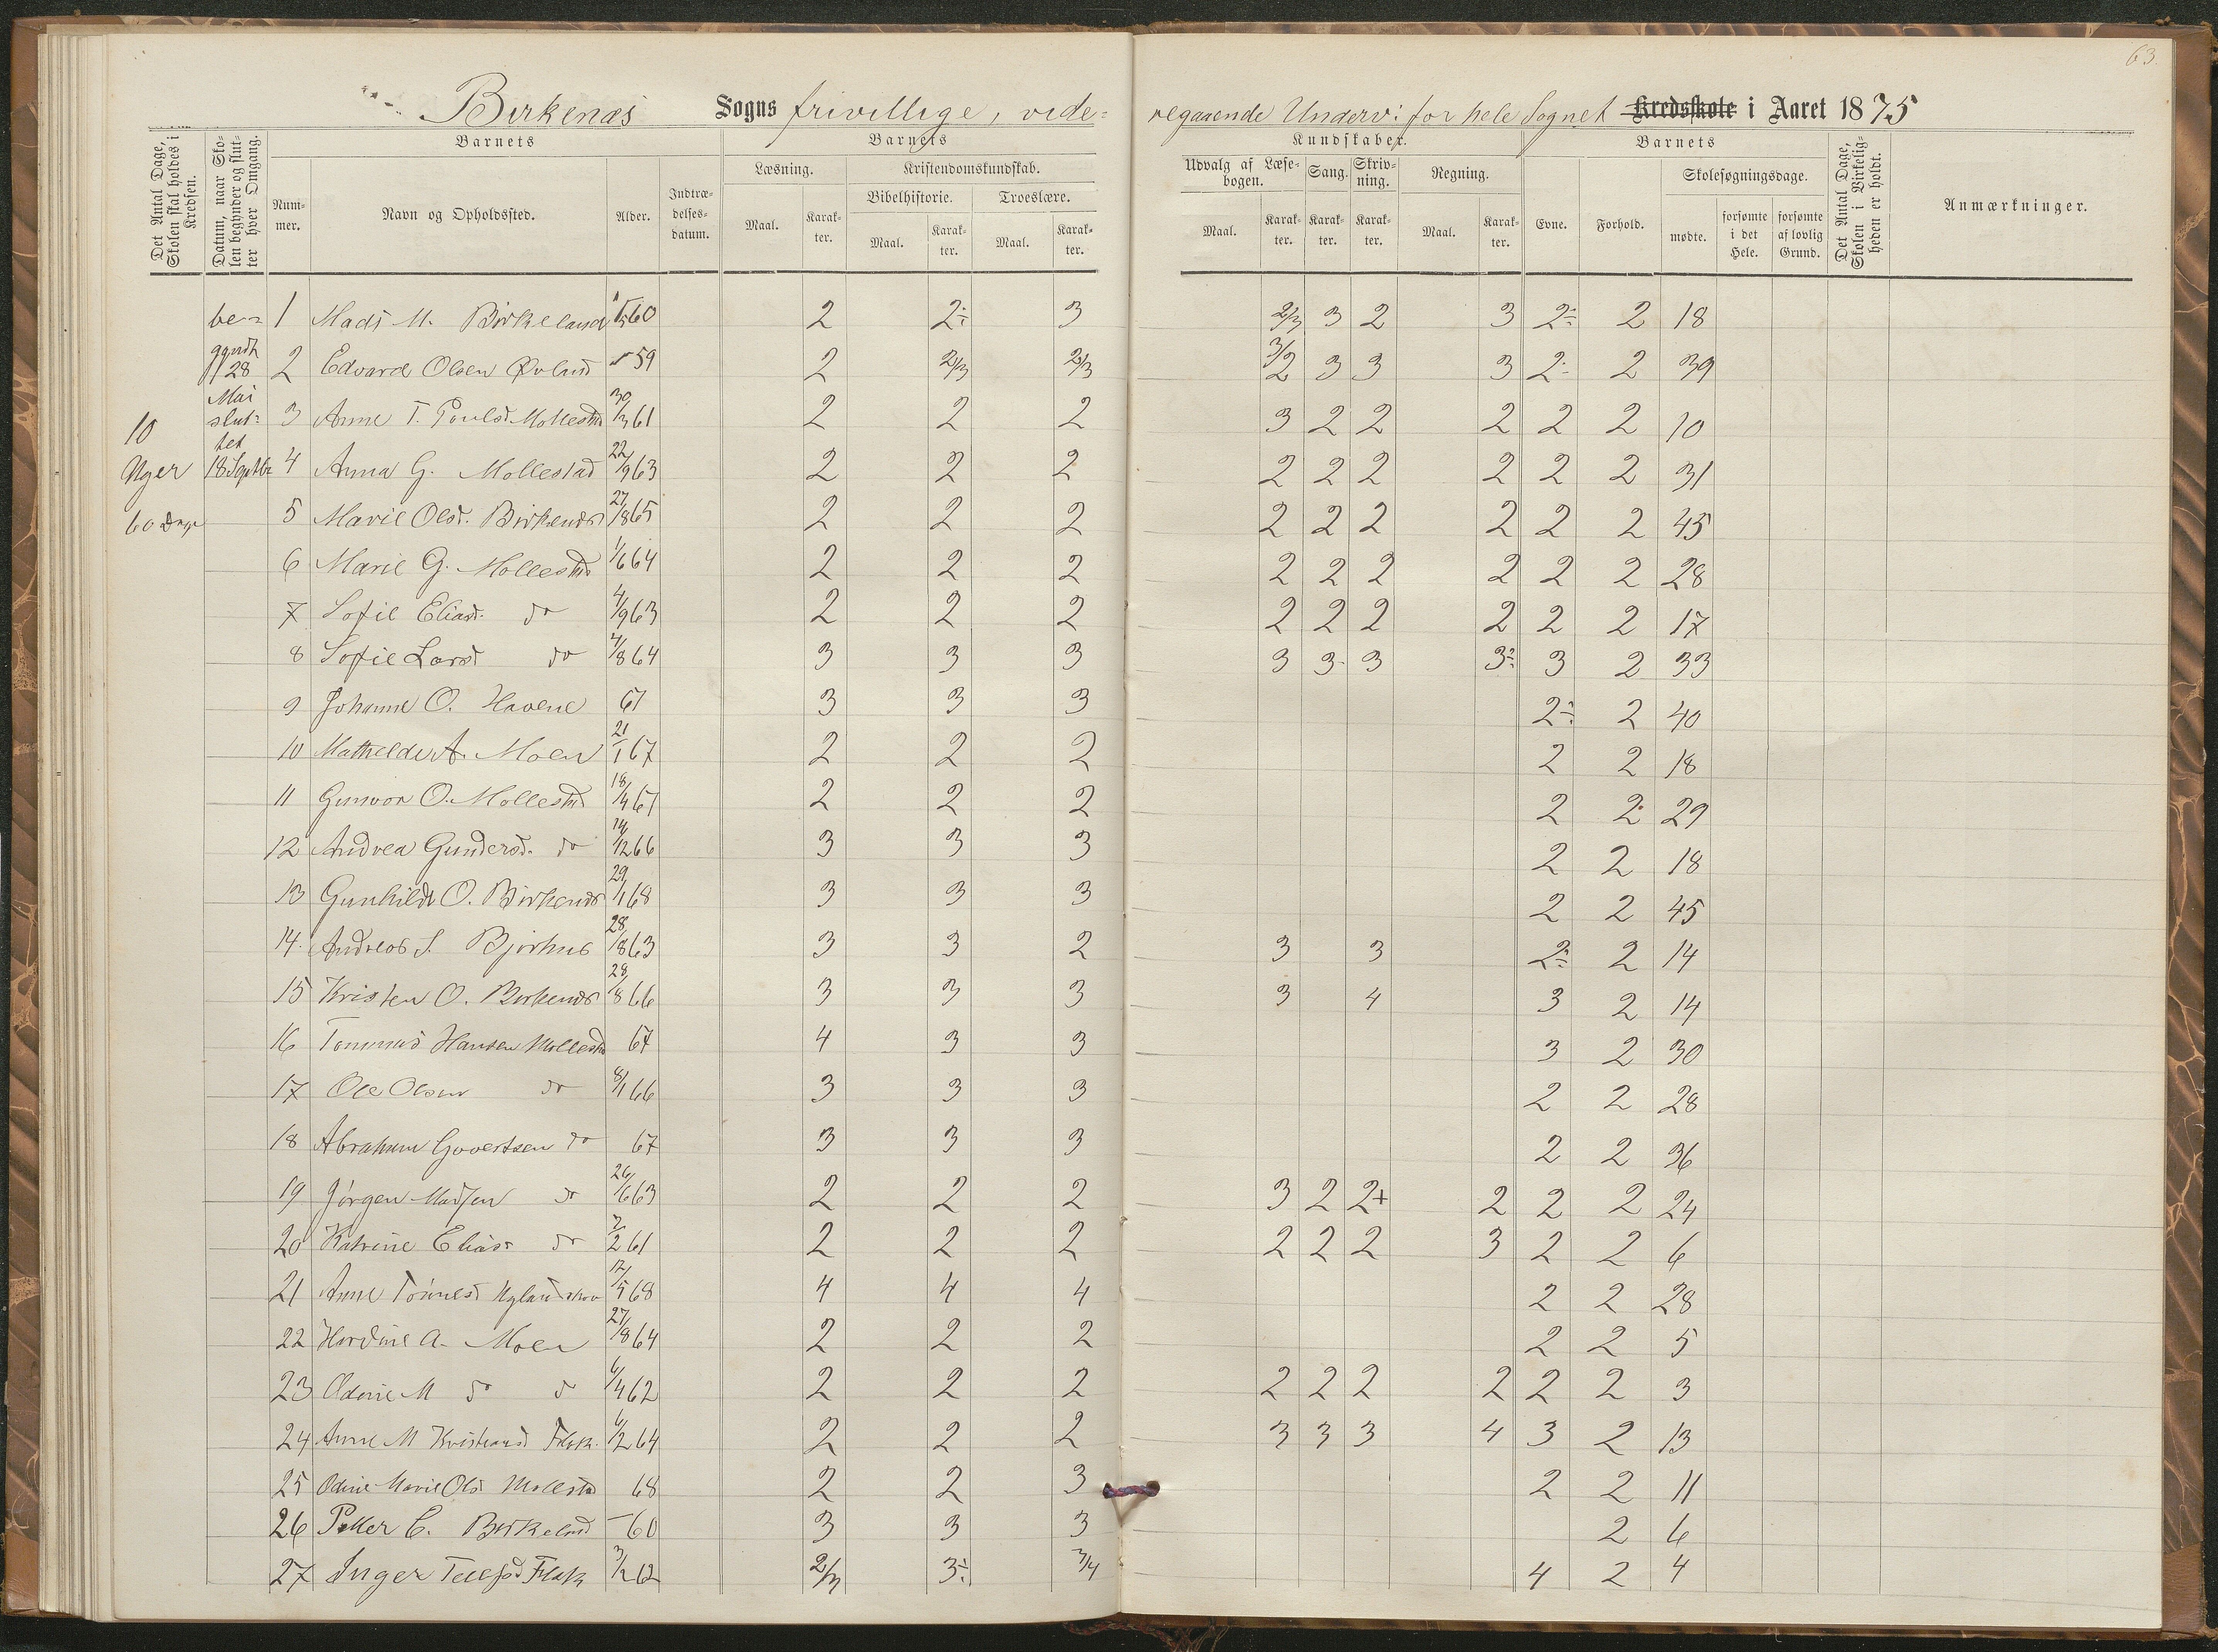 63.
Birkenæs Sogns frivillige, vide=
regaaende Underv: for hele Sognet Kredsskole i Aaret 1875
Det Antal Dage, Skolen skal holdes i Kredsen.
Datum, naar Skolen begynder og slutter hver Omgang.
Barnets
Nummer.
Navn og Opholdssted.
Alder.
Indtrædelsesdatum.
Barnets
Læsning.
Maal.
Karakter.
Kristendomskundskab.
Bibelhistorie.
Maal.
Karakter.
Troeslære.
Maal.
Karakter.
Kundskaber.
Udvalg af Læsebogen.
Maal.
Karakter.
Sang.
Karakter.
Skrivning.
Karakter.
Regning.
Maal.
Karakter.
Barnets
Evne.
Forhold.
Skolesøgningsdage.
mødte.
forsømte i det Hele.
forsømte af lovlig Grund.
Det Antal Dage, Skolen i Virkeligheden er holdt.
Anmærkninger.
10
Uger
60 Dage
be=
gyndt
28
Mai
slut=
tet
18 Septbr
1 Mads M. Birkeland 60 2 2÷ 3 2/3 3 2 3 2÷ 2 18
2 Edvard Olsen Øvland 59 2 2/3 2/3 3/2 3 3 3 2÷ 2 39
3 Anne T. Poulsd. Mollestad 30/3 61 2 2 2 3 2 2 2 2 2 10
4 Anna G. Mollestad 22/9 63 2 2 2 2 2 2 2 2 2 31
5 Marie Olsd. Birkenæs 27/8 65 2 2 2 2 2 2 2 2 2 45
6 Marie G. Mollestad 1/6 64 2 2 2 2 2 2 2 2 2 28
7 Sofie Eliasd. do 4/9 63 2 2 2 2 2 2 2 2 2 17
8 Sofie Larsd do 4/8 64 3 3 3 3 3 3 3÷ 3 2 33
9 Johanne O. Havene 67 3 3 3 2÷ 2 40
10 Mathilde A. Moen 21/1 67 2 2 2 2 2 18
11 Gunvor O. Mollestad 18/4 67 2 2 2 2 2 29
12 Andrea Gundersd. do 14/12 66 3 3 3 2 2 18
13 Gunhilde O. Birkenæs 29/1 68 3 3 3 2 2 45
14. Andreas S. Bjorhus 28/8 63 3 3 2 3 3 2÷ 2 14
15 Kristen O. Birkenæs 28/8 66 3 3 3 3 4 3 2 14
16 Tommas Hansen Mollestad 67 4 3 3 3 2 30
17 Ole Olsen do 8/1 66 3 3 3 2 2 28
18 Abraham Govertsen do 67 3 3 3 2 2 36
19 Jørgen Madsen do 26/6 63 2 2 2 3 2 2+ 2 2 2 24
20 Katrine Eliasd do 7/2 61 2 2 2 2 2 2 3 2 2 6
21 Anne Tønnesd 17/5 68 4 4 4 2 2 28
22 A. Moen 27/8 64 2 2 2 2 2 5
23 Odine M do do 6/4 62 2 2 2 2 2 2 2 2 2 3
24 Anne M Kristensd Flak. 6/12 64 2 2 2 3 3 3 4 3 2 13
25 Odine Marie Olsd Mollestad 68 2 2 3 2 2 11
26 Petter C. Birkeland 60 3 3 3 2 6
27 Inger Tellefsd Flak 3/12 62 2/3 3÷ 3/4 4 2 4